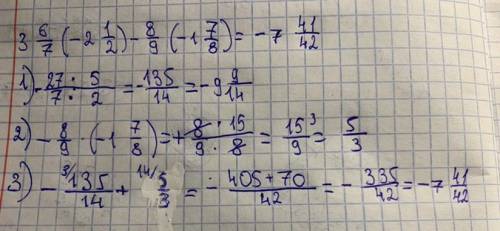 3 6/7 (-2 1/2) - 8/9 (-1 7/8) = -7 41/42
1) -27·5/7·2 = -135/14 = -9 9/14
2) -8/9 · (-1 7/8) = +8·15/9·8 = 15/9 3 = 5/3
3) -3/135/14 + 14/5/3 = -405+70/42 = -335/42 = -7 41/42